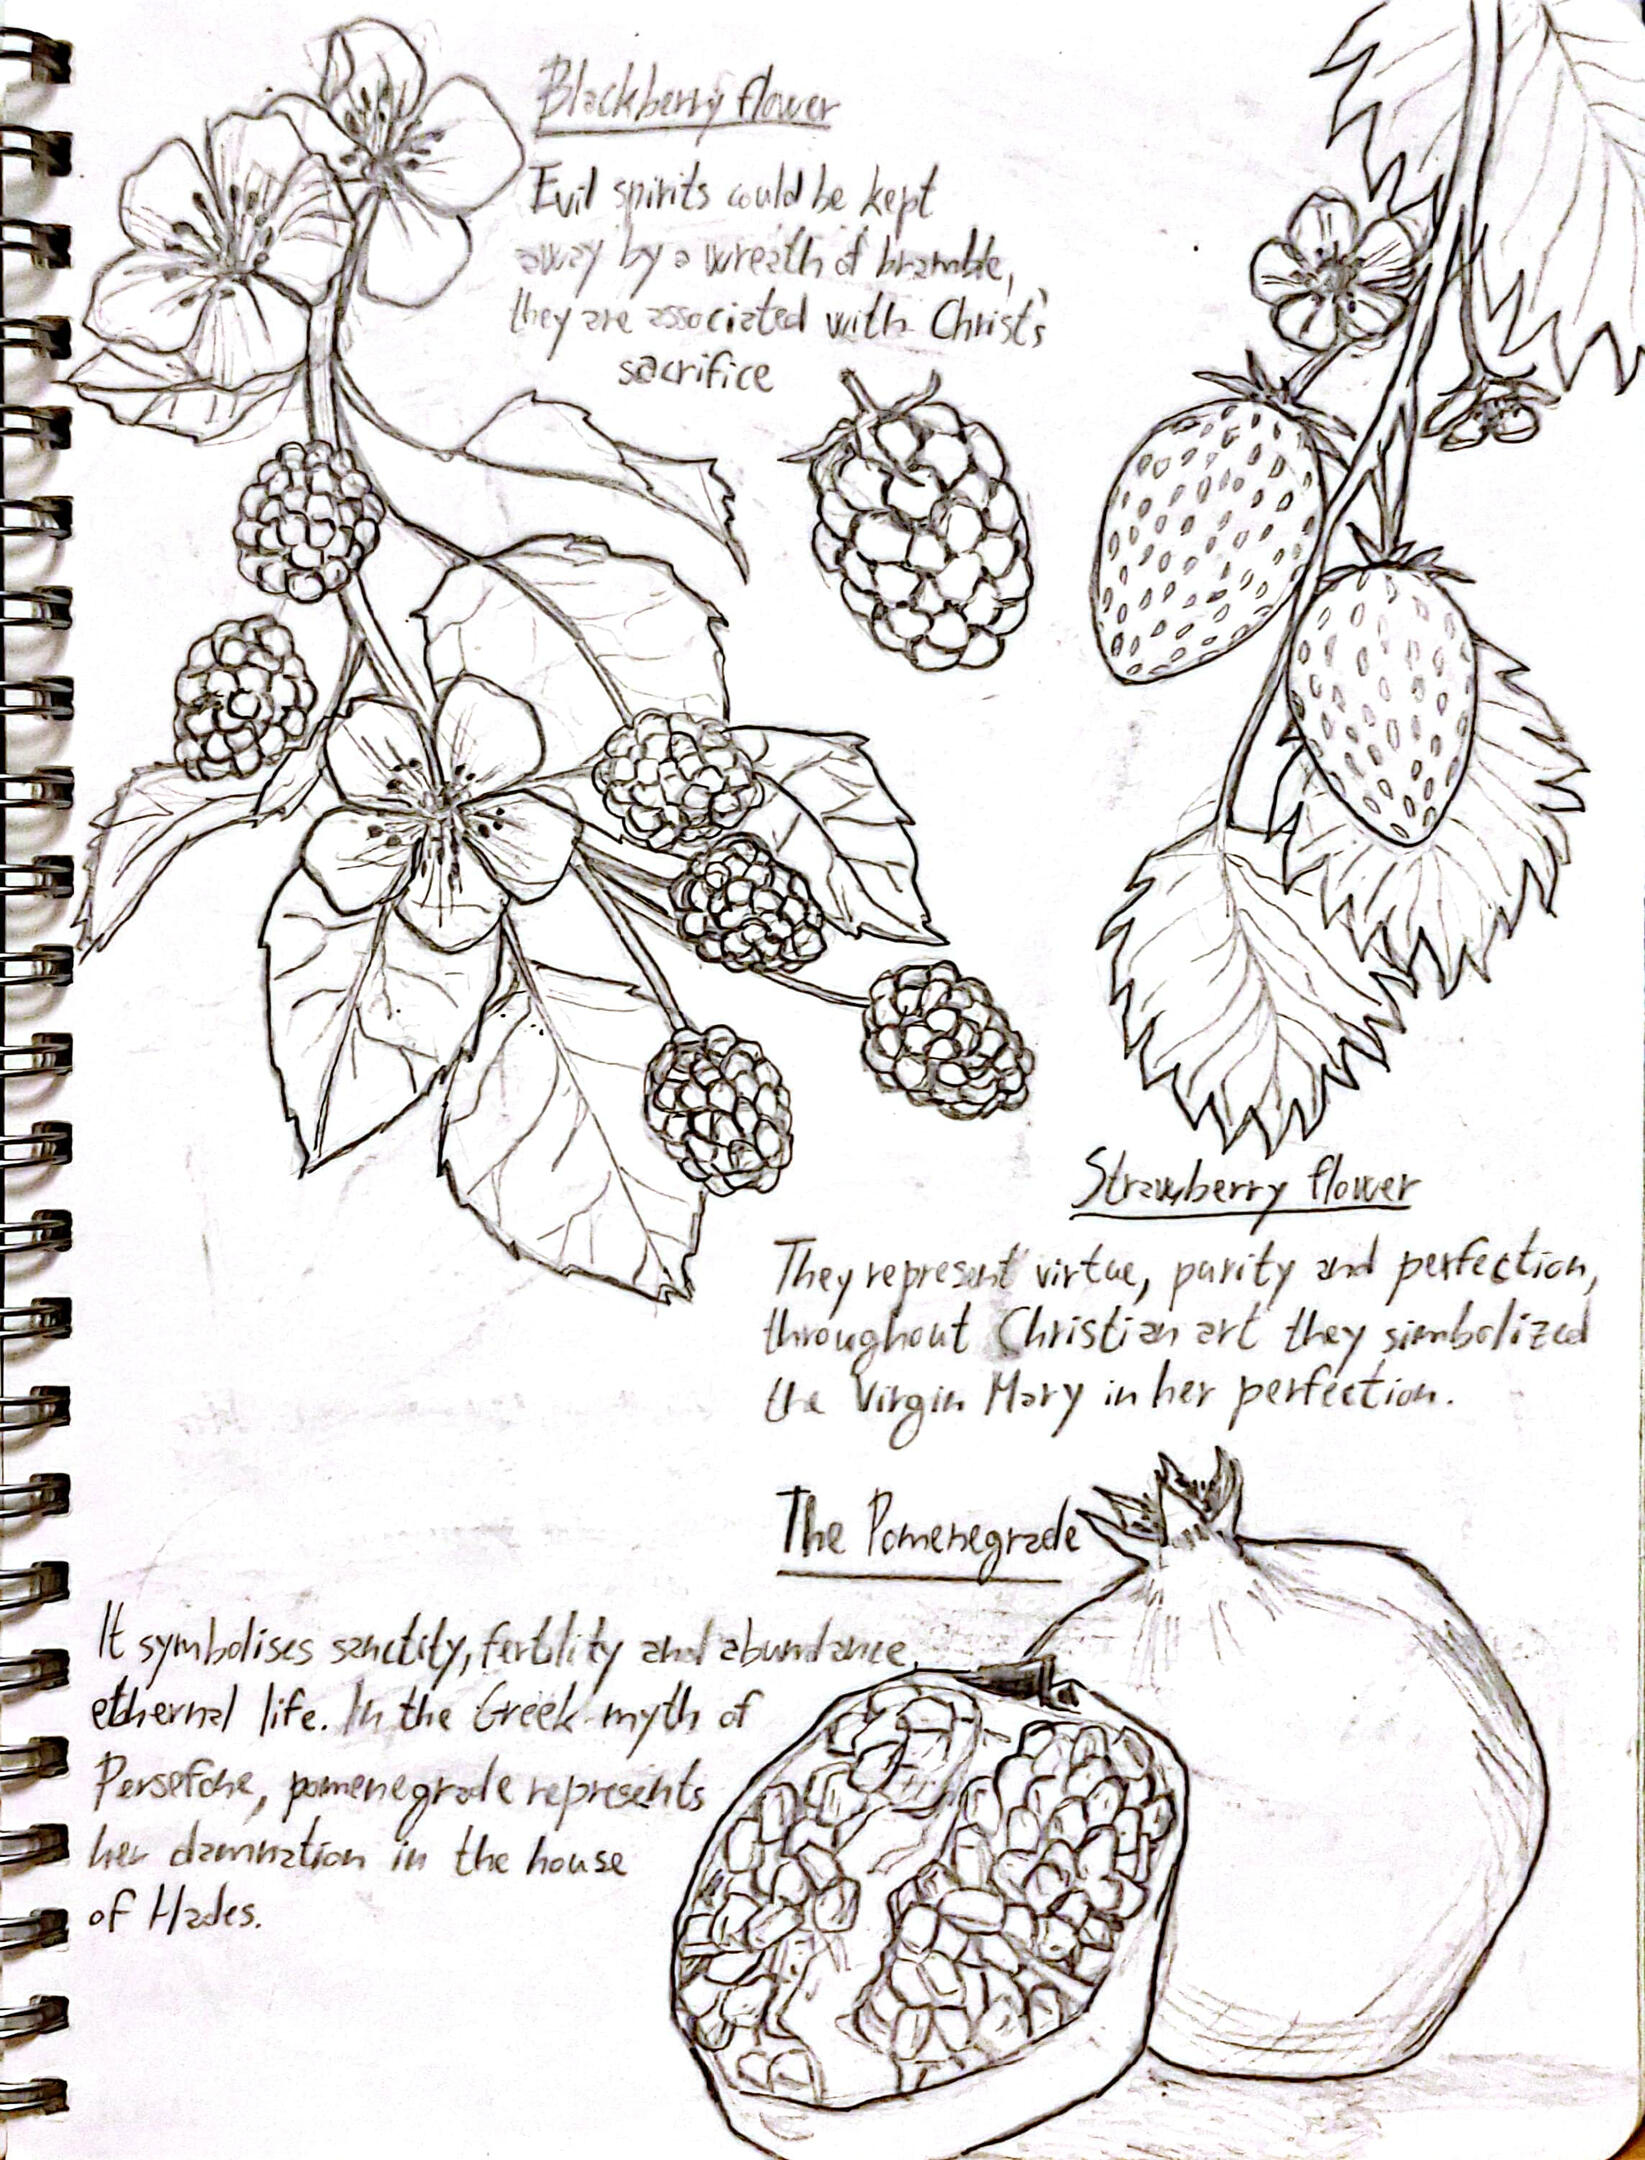 Blackberry flower
Evil spirits could be kept
away by a wreath of bramble,
they are associated with Christ's
sacrifice
Strawberry flower
They represent virtue, purity and perfection,
throughout Christian art they simbolized
the Virgin Mary in her perfection.
The Pomenegrade
It symbolises sanctity, fertility and abundance,
ethernal life. In the Greek myth of
Persefone, pomenegrade represents
her damnation in the house
of Hades.